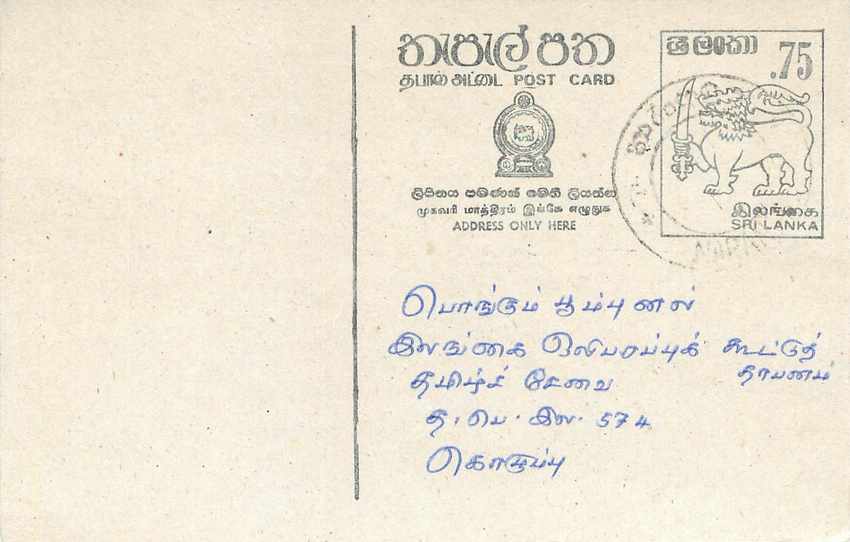 තැපැල් පත
தபால் அட்டை POST CARD
ලිපිනය පමණක් මෙහි ලියන්න
முகவரி மாத்திரம் இங்கே எழுதுக
ADDRESS ONLY HERE
ශ්‍රී ලංකා
.75
இலங்கை
SRI LANKA
பொங்கும் பூம்புனல்
இலங்கை ஒலிபரப்புக் கூட்டுத்
தாபனம்
தமிழ்ச் சேவை
த. பெ. இல. 574
கொழும்பு